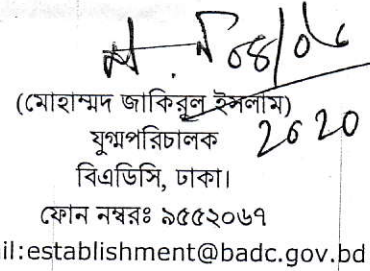 ০৪/০৮
(মোহাম্মদ জাকিরুল ইসলাম)
২০২০
যুগ্মপরিচালক
বিএডিসি, ঢাকা।
ফোন নম্বরঃ ৯৫৫২০৬৭
il:establishment@badc.gov.bd